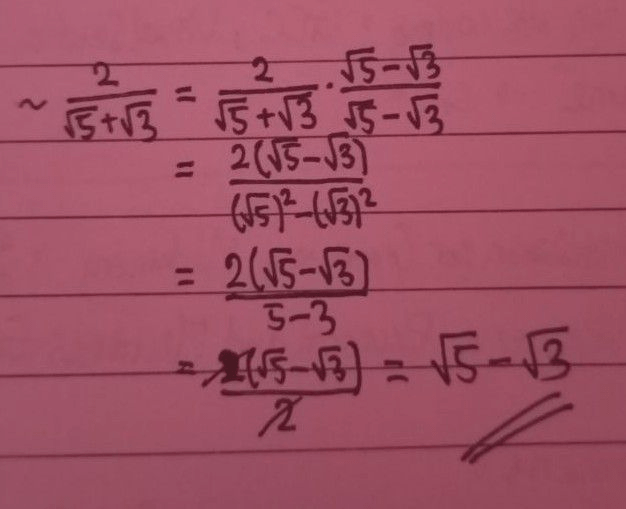 ~ 2/(√5+√3) = 2/(√5+√3) · (√5-√3)/(√5-√3)
= 2(√5-√3)/((√5)²-(√3)²)
= 2(√5-√3)/(5-3)
= 2(√5-√3)/2 = √5-√3